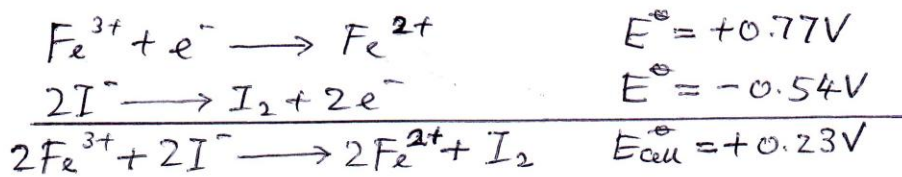 Fe³⁺ + e⁻ ⟶ Fe²⁺ E^⦵ = +0.77V
2I⁻ ⟶ I₂ + 2e⁻ E^⦵ = -0.54V
2Fe³⁺ + 2I⁻ ⟶ 2Fe²⁺ + I₂ E^⦵cell = +0.23V